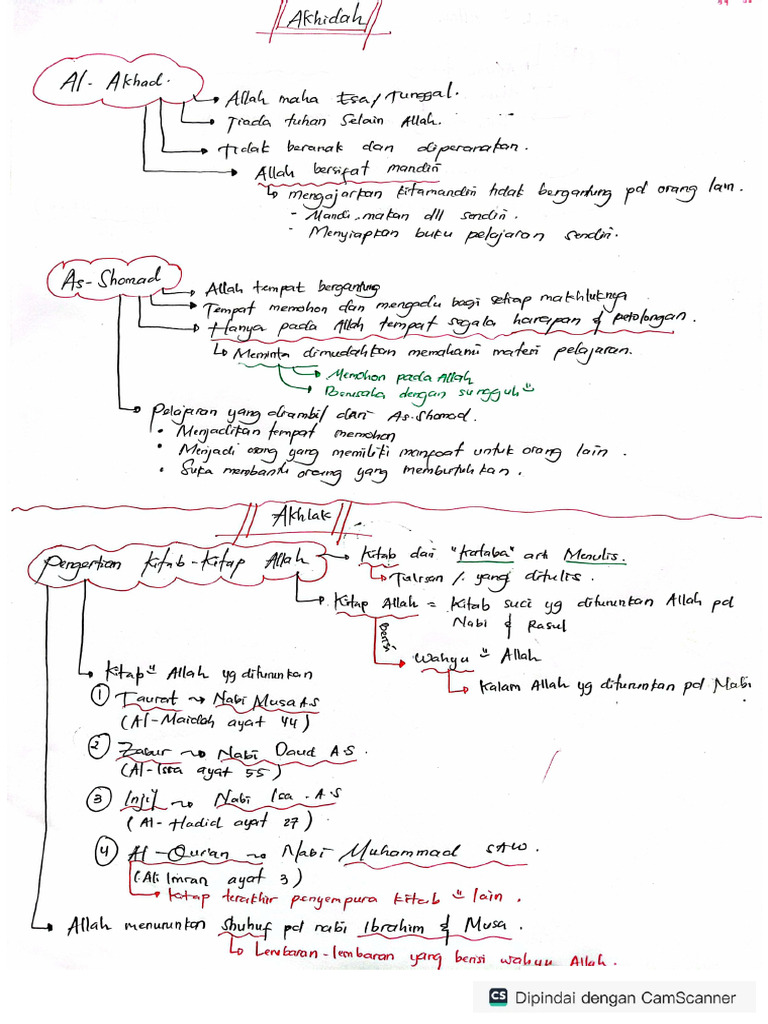 Akhidah
Al-Akhad.
Allah maha Esa/Tunggal.
Tiada tuhan Selain Allah.
Tidak beranak dan diperanakan.
Allah bersifat mandiri
mengajarkan kita mandiri tidak bergantung pd orang lain.
- Mandi, makan dll sendiri.
- Menyiapkan buku pelajaran sendiri.
As-Shomad
Allah tempat bergantung
Tempat memohon dan mengadu bagi setiap makhluknya
Hanya pada Allah tempat segala harapan & petolongan.
Meminta dimudahkan memahami materi pelajaran.
Memohon pada Allah
Berusaha dengan sungguh"
Pelajaran yang diambil dari As-Shomad.
• Menjadikan tempat memohon
• Menjadi orang yang memiliki manfaat untuk orang lain.
• Suka membantu orang yang membutuhkan.
Akhlak
Pengertian Kitab-Kitap Allah
Kitab dari "Kataba" arti Menulis.
Tulisan / yang ditulis.
Kitap Allah = Kitab suci yg diturunkan Allah pd
Nabi & Rasul
Berisi
Wahyu" Allah
Kalam Allah yg diturunkan pd Nabi
Kitap" Allah yg diturunkan
① Taurat → Nabi Musa A.S
(Al-Maidah ayat 44)
② Zabur → Nabi Daud A.S.
(Al-Issa ayat 55)
③ Injil → Nabi Isa A.S
(Al-Hadid ayat 27)
④ Al-Qur'an → Nabi Muhammad SAW.
(Ali Imran ayat 3)
Kitap terakhir penyempura kitab" lain.
Allah menurunkan Shuhuf pd nabi Ibrahim & Musa.
Lembaran-lembaran yang berisi wahyu Allah.
CS Dipindai dengan CamScanner